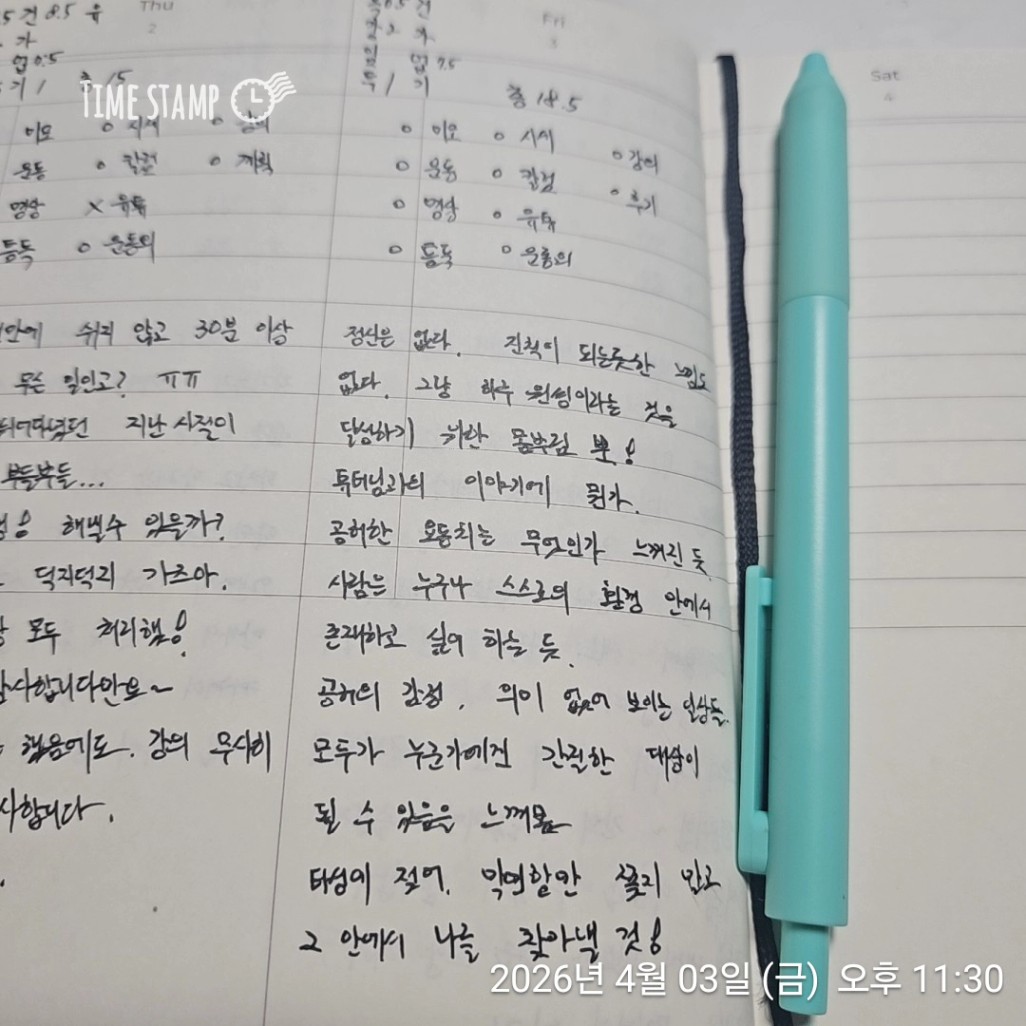 Thu
2
Fri
3
Sat
4
TIME STAMP
5 건 8.5 유
가
업 0.5
기 /
총 15
가
업 7.5
/ 기
총 18.5
이모 ○ 시세 ○ 강의
운동 ○ 칼럼 ○ 계획
명상 × 유튜
틈독 ○ 운동의
○ 이모 ○ 시세 ○ 강의
○ 운동 ○ 칼럼 ○ 후기
○ 명상 ○ 유튜
○ 틈독 ○ 운동의
안에 쉬지 않고 30분 이상
무슨 일인고? ㅠㅠ
지난 시절이
부들부들...
해낼수 있을까?
덕지덕지 가즈아.
모두 처리했!
감사합니다만요~
했음에도. 강의 무사히
사합니다.
정신은 없다. 진척이 되는듯한 느낌도
없다. 그냥 하루 원씽이라는 것을
달성하기 위한 몸부림 뿐!
튜터님과의 이야기에 뭔가.
공허한 요동치는 무엇인가 느껴진 듯.
사람은 누구나 스스로의 환경 안에서
존재하고 싶어 하는 듯.
공허의 감정, 의미 없어 보이는 일상들.
모두가 누군가에겐 간절한 대상이
될 수 있음을 느껴봄
타성에 젖어, 막연함만 쫓지 말고
그 안에서 나를 찾아낼 것!
2026년 4월 03일 (금) 오후 11:30